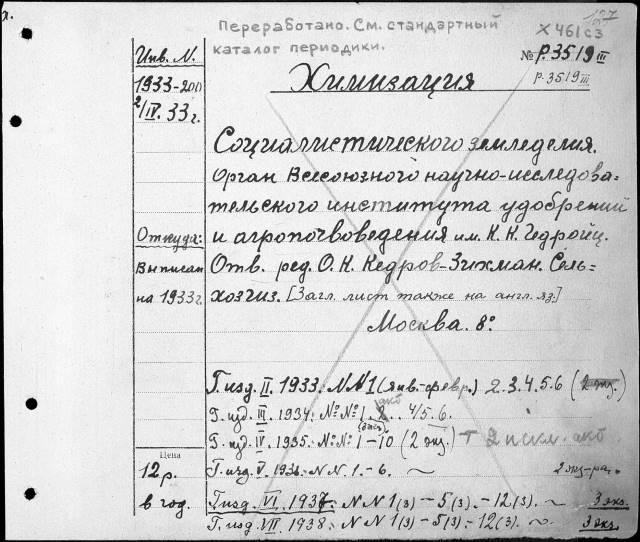 Переработано. См. стандартный
каталог периодики.
Х 461 сз
№ Р.3519 III
Р.3519 III
Инв. N.
1933-200
2/IV.33г.
Химизация
Социалистического земледелия.
Орган Всесоюзного научно-исследова=
тельского института удобрений
и агропочвоведения им. К. К. Гедройц.
Откуда:
Выписан
на 1933г.
Отв. ред. О. К. Кедров-Зихман. Сель=
хозгиз. [Загл. лист также на англ. яз.]
Москва. 8º
Г. изд. II. 1933. N N 1 (янв.-февр.) 2. 3. 4. 5. 6 (2 экз.)
Г. изд. III. 1934. №№ 1, 2. 4/5. 6.
Г. изд. IV. 1935. №№ 1-10 (2 экз.) + 2 искл. акб
Цена
12 р.
в год.
Г. изд. V. 1936. N N. 1.-6. ~
Г. изд. VI. 1937. N N 1(3) - 5(3). - 12(3). ~ 3 экз.
Г. изд. VII. 1938. N N 1(3) - 5(3) - 12(3). ~ 3 экз.